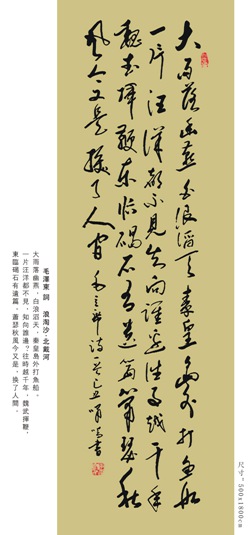 大雨落幽燕白浪滔天秦皇島外打魚船
一片汪洋都不見知向誰邊往事越千年
魏武揮鞭東臨碣石有遺篇蕭瑟秋
風今又是換了人間 毛主席詩 己丑 書
毛澤東 詞 浪淘沙·北戴河
大雨落幽燕，白浪滔天，秦皇島外打魚船。
一片汪洋都不見，知向誰邊？往時越千年，魏武揮鞭，
東臨碣石有遺篇，蕭瑟秋風今又是，換了人間。
尺寸：500x1800cm